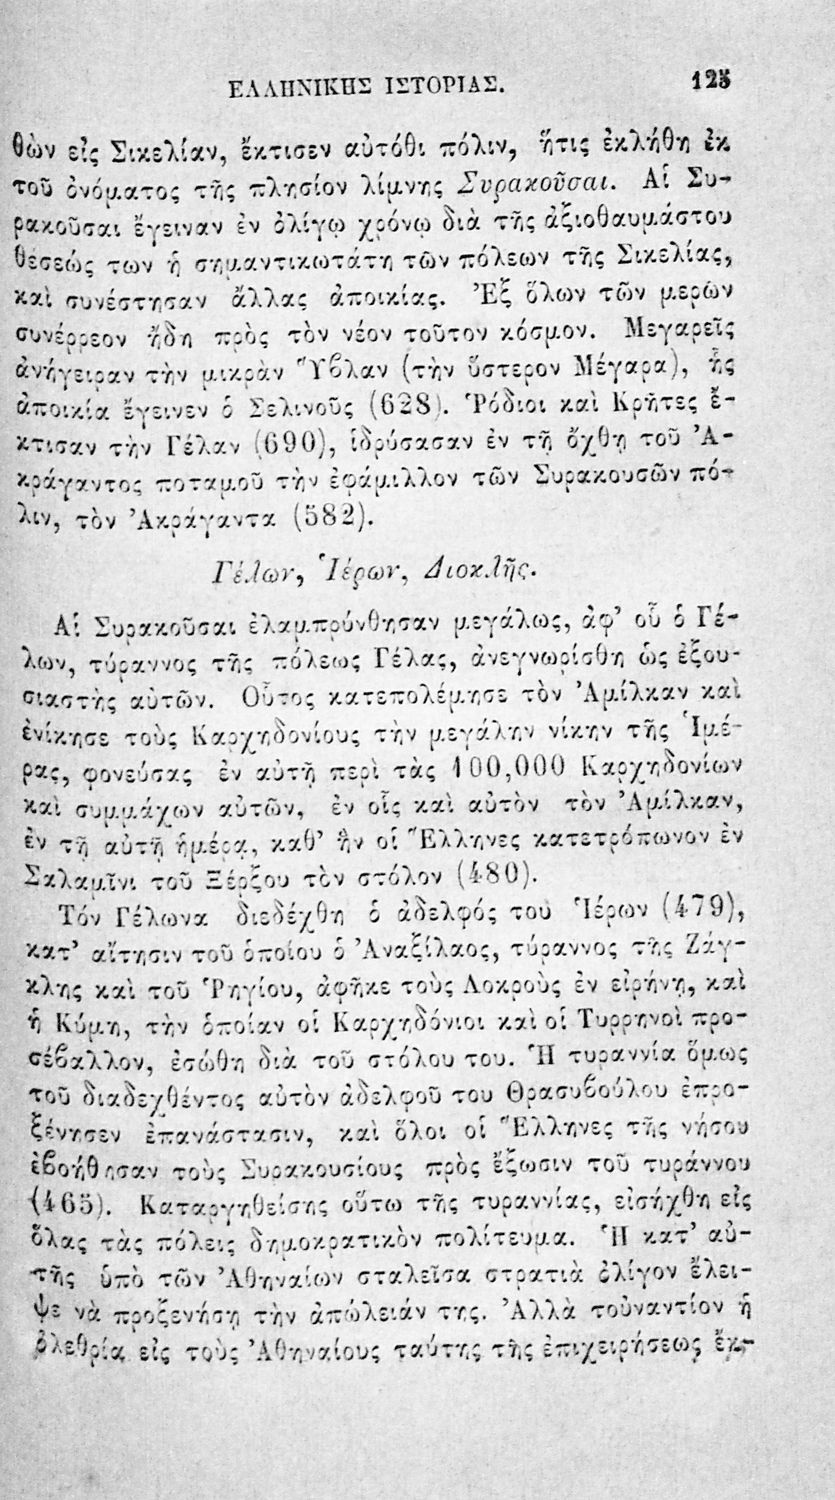 ΕΛΛΗΝΙΚΗΣ ΙΣΤΟΡΙΑΣ. 125
θὼν εἰς Σικελίαν, ἔκτισεν αὐτόθι πόλιν, ἥτις ἐκλήθη ἐκ
τοῦ ὀνόματος τῆς πλησίον λίμνης Συρακοῦσαι. Αἱ Συ-
ρακοῦσαι ἔγειναν ἐν ὀλίγῳ χρόνῳ διὰ τῆς ἀξιοθαυμάστου
θέσεώς των ἡ σημαντικωτάτη τῶν πόλεων τῆς Σικελίας,
καὶ συνέστησαν ἄλλας ἀποικίας. Ἐξ ὅλων τῶν μερῶν
συνέρρεον ἤδη πρὸς τὸν νέον τοῦτον κόσμον. Μεγαρεῖς
ἀνήγειραν τὴν μικρὰν Ὕβλαν (τὴν ὕστερον Μέγαρα), ἧς
ἀποικία ἔγεινεν ὁ Σελινοῦς (628). Ῥόδιοι καὶ Κρῆτες ἔ-
κτισαν τὴν Γέλαν (690), ἱδρύσασαν ἐν τῇ ὄχθῃ τοῦ Ἀ-
κράγαντος ποταμοῦ τὴν ἐφάμιλλον τῶν Συρακουσῶν πό-
λιν, τὸν Ἀκράγαντα (582).
Γέλων, Ἱέρων, Διοκλῆς.
Αἱ Συρακοῦσαι ἐλαμπρύνθησαν μεγάλως, ἀφ' οὗ ὁ Γέ-
λων, τύραννος τῆς πόλεως Γέλας, ἀνεγνωρίσθη ὡς ἐξου-
σιαστὴς αὐτῶν. Οὗτος κατεπολέμησε τὸν Ἀμίλκαν καὶ
ἐνίκησε τοὺς Καρχηδονίους τὴν μεγάλην νίκην τῆς Ἱμέ-
ρας, φονεύσας ἐν αὐτῇ περὶ τὰς 100,000 Καρχηδονίων
καὶ συμμάχων αὐτῶν, ἐν οἷς καὶ αὐτὸν τὸν Ἀμίλκαν,
ἐν τῇ αὐτῇ ἡμέρᾳ, καθ' ἣν οἱ Ἕλληνες κατετρόπωνον ἐν
Σαλαμῖνι τοῦ Ξέρξου τὸν στόλον (480).
Τόν Γέλωνα διεδέχθη ὁ ἀδελφός του Ἱέρων (479),
κατ' αἴτησιν τοῦ ὁποίου ὁ Ἀναξίλαος, τύραννος τῆς Ζάγ-
κλης καὶ τοῦ Ῥηγίου, ἀφῆκε τοὺς Λοκροὺς ἐν εἰρήνῃ, καὶ
ἡ Κύμη, τὴν ὁποίαν οἱ Καρχηδόνιοι καὶ οἱ Τυρρηνοὶ προ-
σέβαλλον, ἐσώθη διὰ τοῦ στόλου του. Ἡ τυραννία ὅμως
τοῦ διαδεχθέντος αὐτὸν ἀδελφοῦ του Θρασυβούλου ἐπρο-
ξένησεν ἐπανάστασιν, καὶ ὅλοι οἱ Ἕλληνες τῆς νήσου
ἐβοήθησαν τοὺς Συρακουσίους πρὸς ἔξωσιν τοῦ τυράννου
(465). Καταργηθείσης οὕτω τῆς τυραννίας, εἰσήχθη εἰς
ὅλας τὰς πόλεις δημοκρατικὸν πολίτευμα. Ἡ κατ' αὐ-
τῆς ὑπὸ τῶν Ἀθηναίων σταλεῖσα στρατιὰ ὀλίγον ἔλει-
ψε νὰ προξενήσῃ τὴν ἀπώλειάν της. Ἀλλὰ τοὐναντίον ἡ
ὀλεθρία εἰς τοὺς Ἀθηναίους ταύτης τῆς ἐπιχειρήσεως ἔκ-